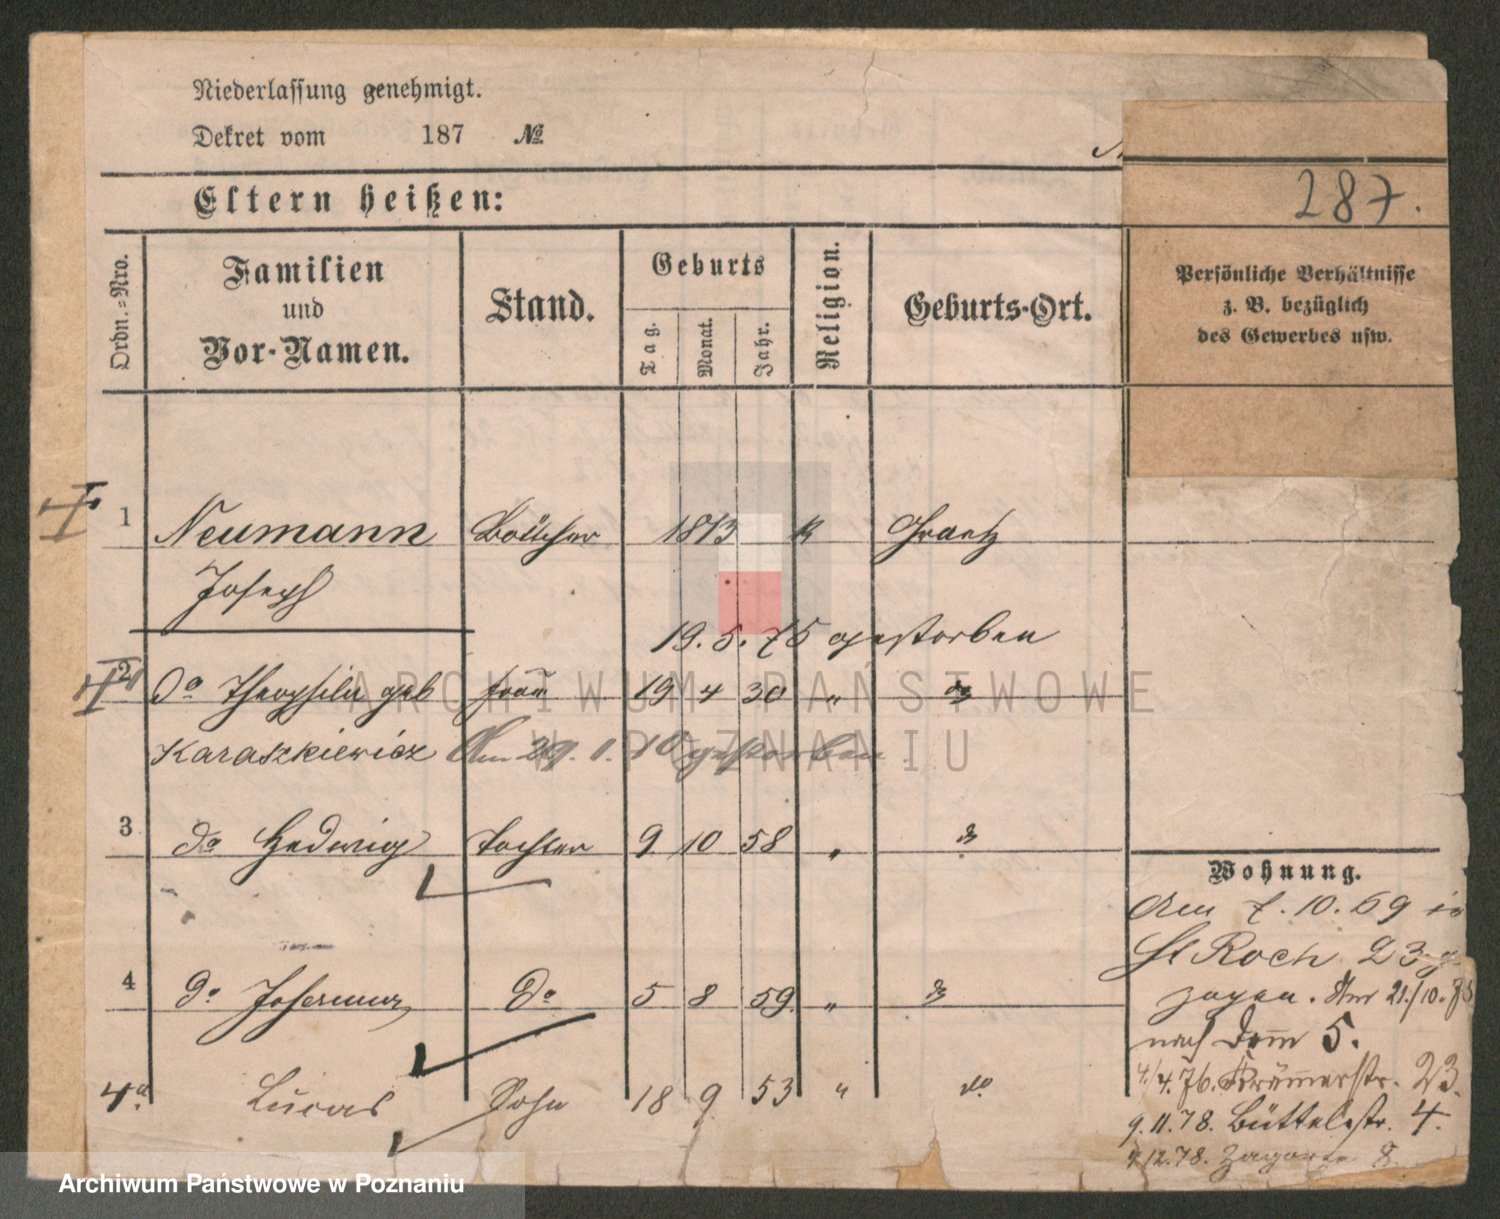 Niederlassung genehmigt.
Dekret vom 187 №
287.
Eltern heißen:
Ordn.=Nro.
Familien
und
Vor-Namen.
Stand.
Geburts
Tag.
Monat.
Jahr.
Religion.
Geburts-Ort.
Persönliche Verhältnisse
z. B. bezüglich
des Gewerbes usw.
1 Neumann Böttcher 1813 k Graetz
Joseph
19. 5. 75 gestorben
2 do Theophila geb Frau 19 4 30 " do
Karaszkiewicz Am 29. 1. 10 gestorben
3 do Hedwig Tochter 9 10 58 " do
4 do do 5 8 59 " do
4a Lucas Sohn 18 9 53 " do
Wohnung.
Am 7. 10. 69
St Roch 23
zogen. 21/10.
nach Dom 5.
4/4. 76. Krämerstr. 23.
9. 11. 78. Büttelstr. 4.
4 12. 78. Zagorze 8.
ARCHIWUM PAŃSTWOWE
W POZNANIU
Archiwum Państwowe w Poznaniu